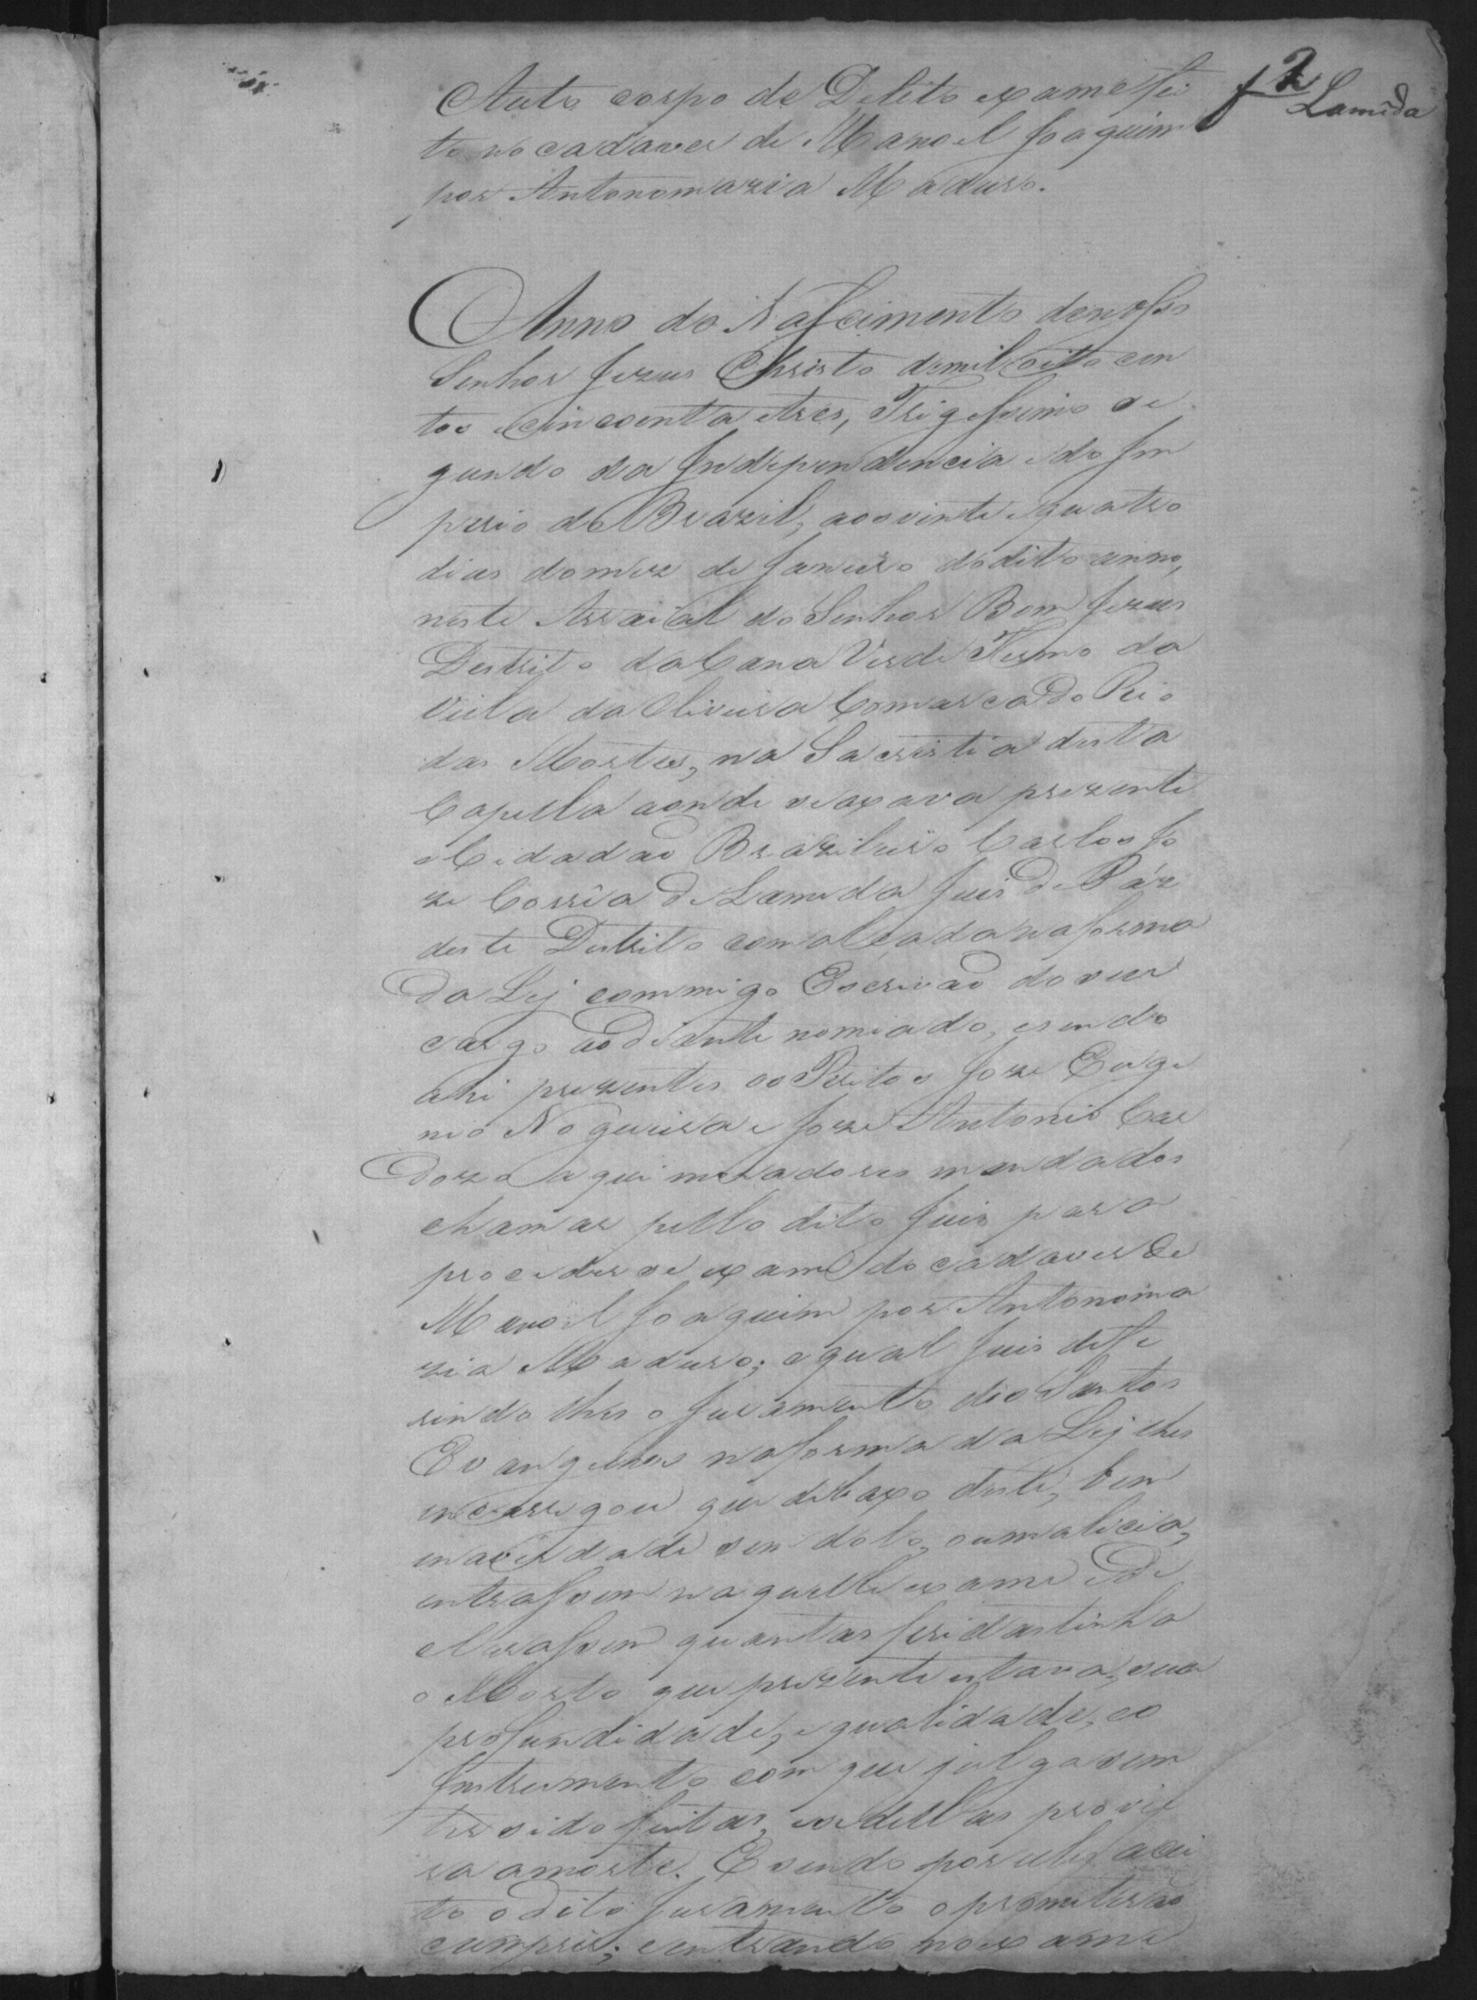 f 2
Lameda
Auto corpo de Delito exame fei
to no cadaver de Manoel Joaquim
por Antonomazia Maduro.
Anno do Nascimento denosso
Senhor Jezus Christo demil oito cen
tos e cincoenta etres, Trigessimo se
gundo da Independencia edo Im
perio do Brazil, aos vinte e quatro
dias domez de Janeiro dodito anno,
neste Arraial do Senhor Bom Jezus
Destrito da Cana Verde Termo da
Villa da Oliveira Comarca do Rio
das Mortes, na Sacristia desta
Capella aonde seaxava prezente
o Cidadao Brazileiro Carlos Jo
ze Corrêa de Lameda Juis de Páz
deste Destrito com alçada na forma
da Lej commigo Escrivaõ do seu
cargo ao diante nomiado, esendo
ahi prezentes os Peritos Joze Euge
nio Nogueira e Joze Antonio Car
dozo aqui moradores mandados
chamar pello dito Juis para
procederse exame do cadaver de
Manoel Joaquim por Antonoma
zia Maduro; o qual Juis defe
rindo lhes o juramento dos Santos
Evangelhos naforma da Lej lhes
encarregou que debaxo deste, bem
enaverdade sem dolo, oumalicia,
entrassem naquelle exame ede
clarassem quantas feridas tinha
o Morto que prezente estava, sua
profundidade, equalidade, eo
Instrumento com que julgavem
ter sido feitas, esedellas provie
ra amorte. Esendo por elles acei
to odito juramento oprometeraõ
cumprir; eentrando no exame